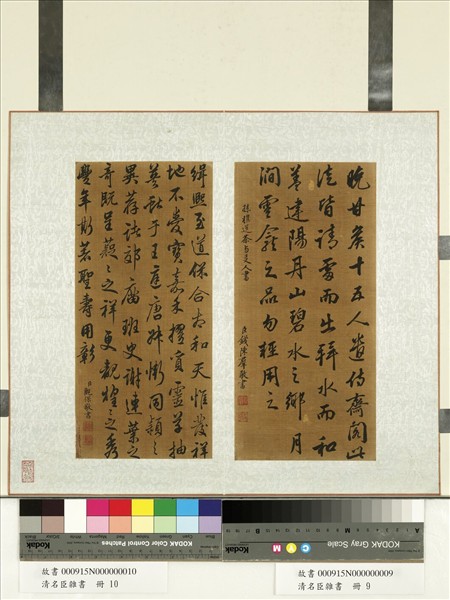 晚甘矦十五人遣侍齋閣此
徒皆請雷而出拜水而和
葢建陽丹山碧水之鄉月
澗雲龕之品勿輕用之
孫樵送茶与友人書
臣錢陳羣敬書
緝熙至道保合太和天惟發祥
地不愛寶嘉禾擢靈草抽
莖獻于王庭唐叔慚同穎之
異荐諸郊廟班史謝連葉之
奇既呈之祥更覩煌之秀
豐年斯著聖壽用彰
臣觀保敬書
Kodak
KODAK Color Control Patches
KODAK Gray Scale
Kodak
C Y M
故書 000915N000000010
清名臣雜書 冊 10
故書 000915N000000009
清名臣雜書 冊 9